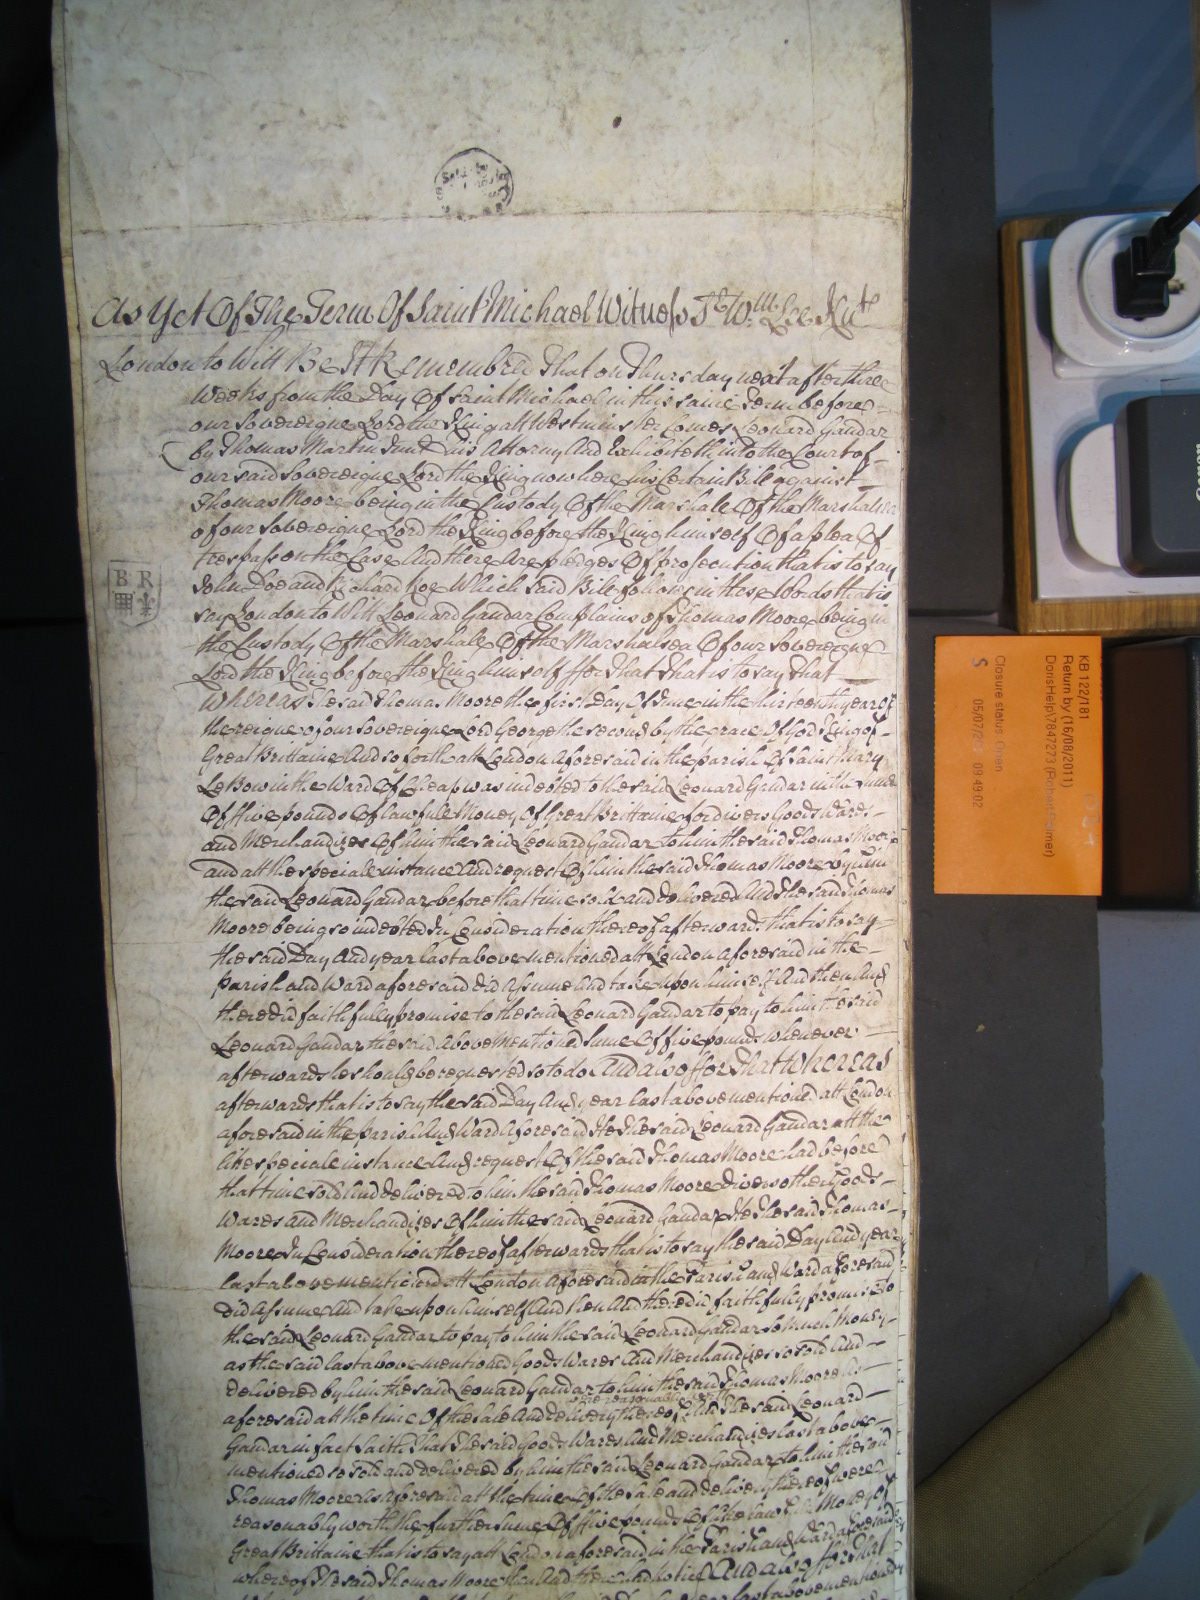 As Yet Of The Term Of Saint Michael Witness Sr. Wm. Lee Knt.
London to Witt Be It Remembred That on Thursday next after three
Weeks from the Day Of Saint Michael in this same Term before
our Sovereigne Lord the King att Westminster Comes Leonard Gandar
by Thomas Martin Junr. his Attorny And Exhibiteth into the Court of
our said Sovereigne Lord the King now here his Certain Bill against
Thomas Moore being in the Custody Of the Marshale Of the Marshalsea
of our Sovereigne Lord the King before the King himself Of a plea Of
trespass on the Case And there Are pledges Of prosecution that is to say
John Doe and Richard Roe Which said Bill follows in these Words that is
say London to Witt Leonard Gandar Complains of Thomas Moore being in
the Custody Of the Marshale Of the Marshalsea Of our Sovereigne
Lord the King before the King himself ffor That That is to say that
Whereas The said Thomas Moore the first Day Of June in the thirteenth year of
the reigne of our Sovereigne Lord George the second by the grace Of God King of
Great Brittaine And so forth att London aforesaid in the parish Of Saint Mary
Le Bow in the Ward Of Cheap was indebted to the said Leonard Gandar in the sume
Of ffive pounds Of lawfule Money Of Great Brittaine for divers Goods Wares
and Merchandizes Of him the said Leonard Gandar To him the said Thomas Moore
and att the speciale instance And request Of him the said Thomas Moore by him
the said Leonard Gandar before that time sold and delivered And The said Thomas
Moore being so indebted In Consideration thereof afterwards that is to say
the said Day And year last above mentioned att London aforesaid in the
parish and Ward aforesaid did Assume And take upon himself And then And
there did faithfully promise to the said Leonard Gandar to pay to him the said
Leonard Gandar the said Above Mentioned Sume Of ffive pounds Whenever
afterwards he should be requested so to do And also ffor That Whereas
afterwards that is to say the said Day And year last above mentioned att London
aforesaid in the parish And Ward Aforesaid He The said Leonard Gandar att the
like speciale instance And request Of the said Thomas Moore had before
that time sold And delivered to him the said Thomas Moore divers other Goods
Wares and Merchandizes Of him the said Leonard Gandar He The said Thomas
Moore In Consideration thereof afterwards that is to say the said Day And year
last above mentioned att London aforesaid in the Parish and Ward aforesaid
did Assume And take upon himself And then And there did faithfully promise to
the said Leonard Gandar to pay to him the said Leonard Gandar so Much Money
as the said last above mentioned Goods Wares And Merchandizes so sold And
delivered by him the said Leonard Gandar to him the said Thomas Moore As
were reasonably worth
aforesaid att the time Of the Sale And delivery thereof And The said Leonard
Gandar in fact saith That The said Goods Wares And Merchandizes last above
mentioned so sold and delivered by him the said Leonard Gandar to him the said
Thomas Moore As aforesaid att the time Of the sale and delivery thereof were
reasonably worth the further sume Of ffive pounds Of the lawfule Money of
Great Brittaine that is to say att London aforesaid in the Parish and Ward aforesaid
whereof The said Thomas Moore then And there had notice And also ffor That
last above mentioned
B R
KB 122/181
Return by (16/08/2011)
DorisHelp\7847273 (Robert Palmer)
Closure status Open
S 05/07/20 09:49:02